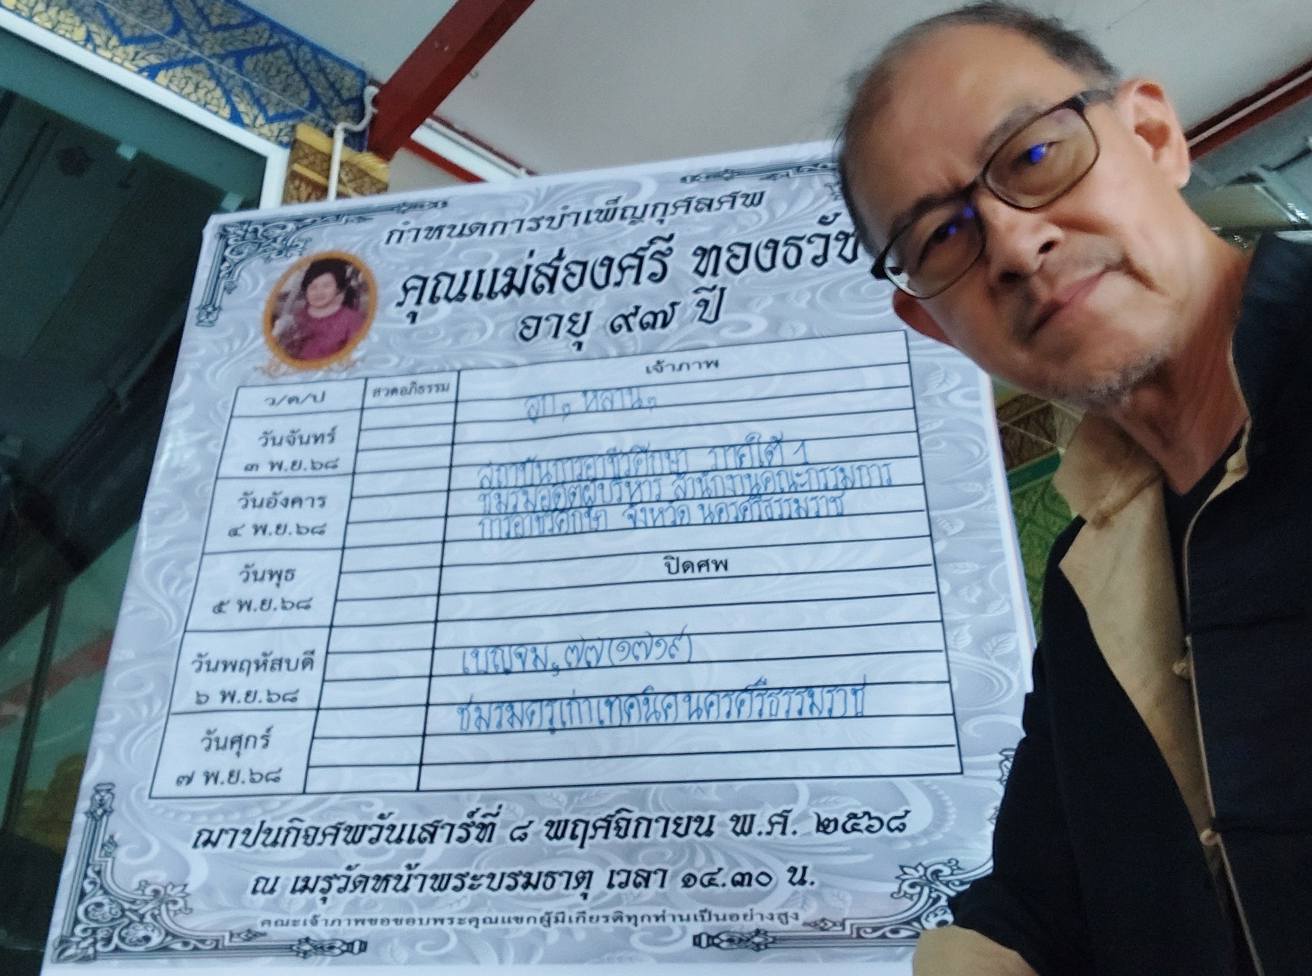 กำหนดการบำเพ็ญกุศลศพ
คุณแม่สองศรี ทองธวัช
อายุ ๙๗ ปี
ว/ด/ป สวดอภิธรรม เจ้าภาพ
ลูกๆ หลานๆ
วันจันทร์
๓ พ.ย.๖๘
สถาบันการอาชีวศึกษา ภาคใต้ 1
วันอังคาร
ชมรมอดีตผู้บริหาร สำนักงานคณะกรรมการ
๔ พ.ย.๖๘
การอาชีวศึกษา จังหวัด นครศรีธรรมราช
วันพุธ ปิดศพ
๕ พ.ย.๖๘
วันพฤหัสบดี เบญจมฯ ๗๗ (๑๗๑๙)
๖ พ.ย.๖๘
ชมรมครูเก่าเทคนิคนครศรีธรรมราช
วันศุกร์
๗ พ.ย.๖๘
ฌาปนกิจศพวันเสาร์ที่ ๘ พฤศจิกายน พ.ศ. ๒๕๖๘
ณ เมรุวัดหน้าพระบรมธาตุ เวลา ๑๔.๓๐ น.
คณะเจ้าภาพขอขอบพระคุณแขกผู้มีเกียรติทุกท่านเป็นอย่างสูง